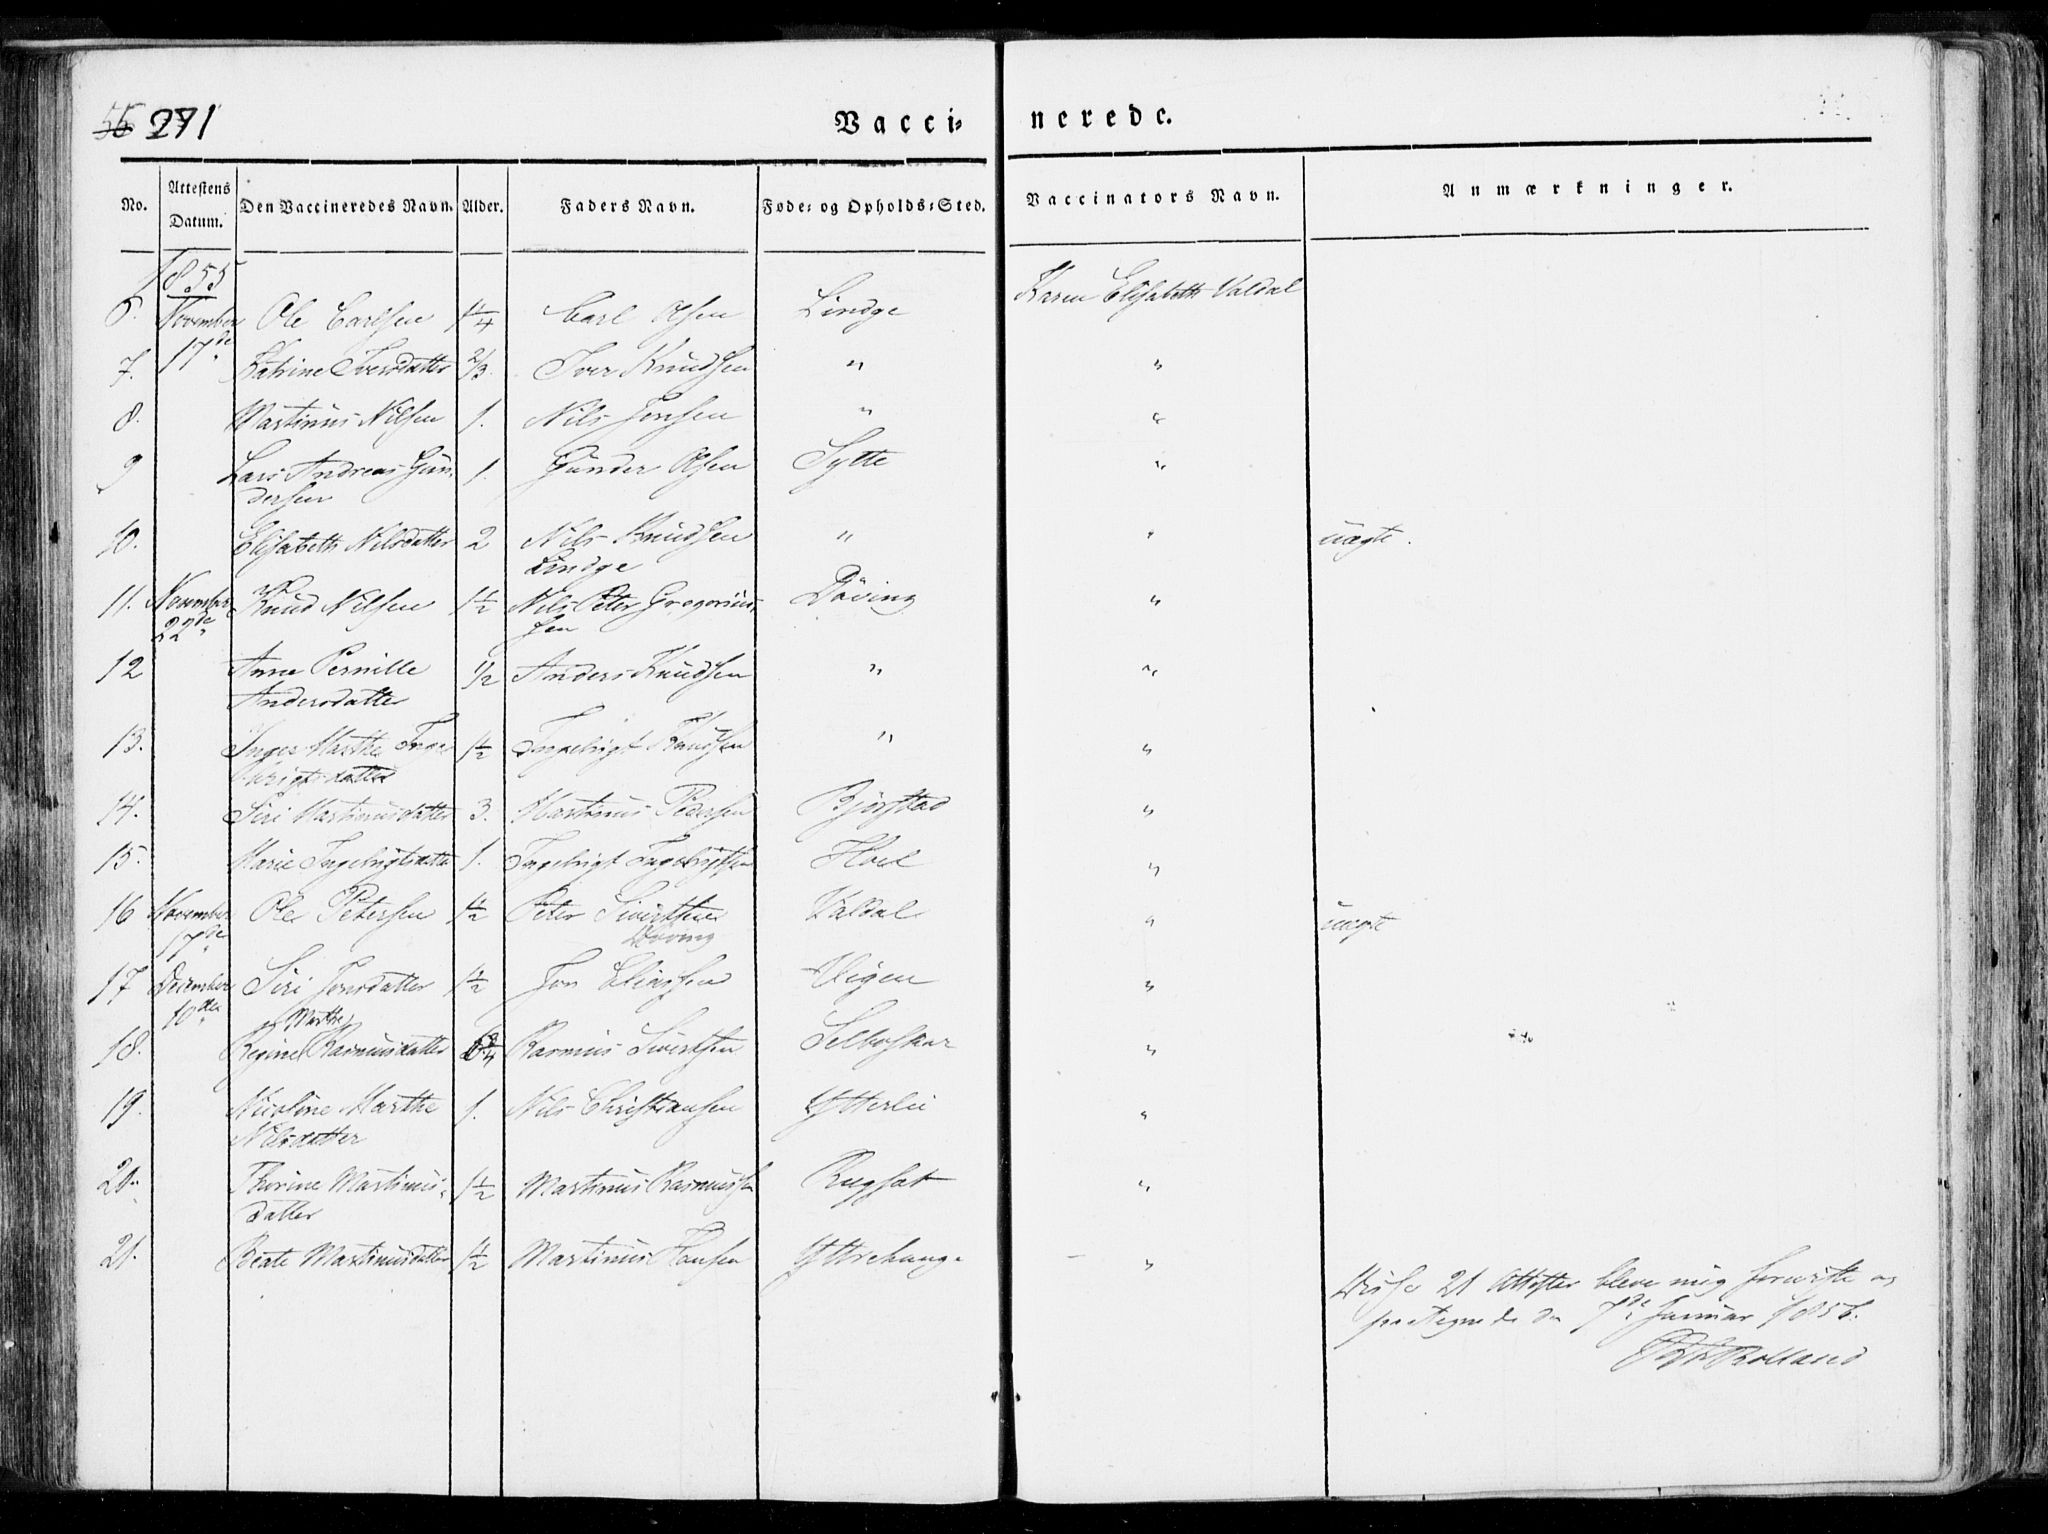 56 271
Vacci- nerede.
No. Attestens Datum. Den Vaccineredes Navn. Alder. Faders Navn. Føde- og Opholds-Sted. Vaccinators Navn. Anmærkninger.
1855
6. November 17de Ole Carlsen 1 1/4 Carl Olsen Lindge Karen Elisabeth Valdal
7. Katrine Iversdatter 2/3. Iver Knudsen " "
8. Martinus Nilsen 1. Nils Jonsen " "
9 Lars Andreas Gun- 1. Gunder Olsen Sylte "
dersen
10. Elisabeth Nilsdatter 2 Nils Knudsen " " uægte.
Lindge
11. November 22de Knud Nilsen 1 1/2 Nils Peter Gregorius- Döving "
sen
12 Anne Pernille 1/2 Anders Knudsen " "
Andersdatter
13. Inger Marthe Inge- 1 1/2 Ingebrigt Knudsen " "
brigtsdatter
14. Siri Martinusdatter 3. Martinus Pedersen Bjørstad "
15. Marie Ingebrigtsdatter 1. Ingebrigt Ingebrigtsen Hoel "
16 November 17de Ole Petersen 1 1/2 Peter Sivertsen Valdal " uægte
Döving
17 December 10den Siri Jonsdatter 1 1/2 Jon Eliassen Uigen "
Marthe
18. Regine Rasmusdatter 3/4 Rasmus Sivertsen Selboskar "
19. Nicoline Marthe 1. Nils Christiansen Ytterlie "
Nilsdatter
20. Thrine Martinus- 1 1/2 Martinus Rasmussen Rugsæt "
datter
21. Beate Martinusdatter 1 1/2 Martinus Hansen Yttrehauge "
Disse 21 Attester bleve mig foreviste og
paategnede den 7de Januar 1856.
Rolland